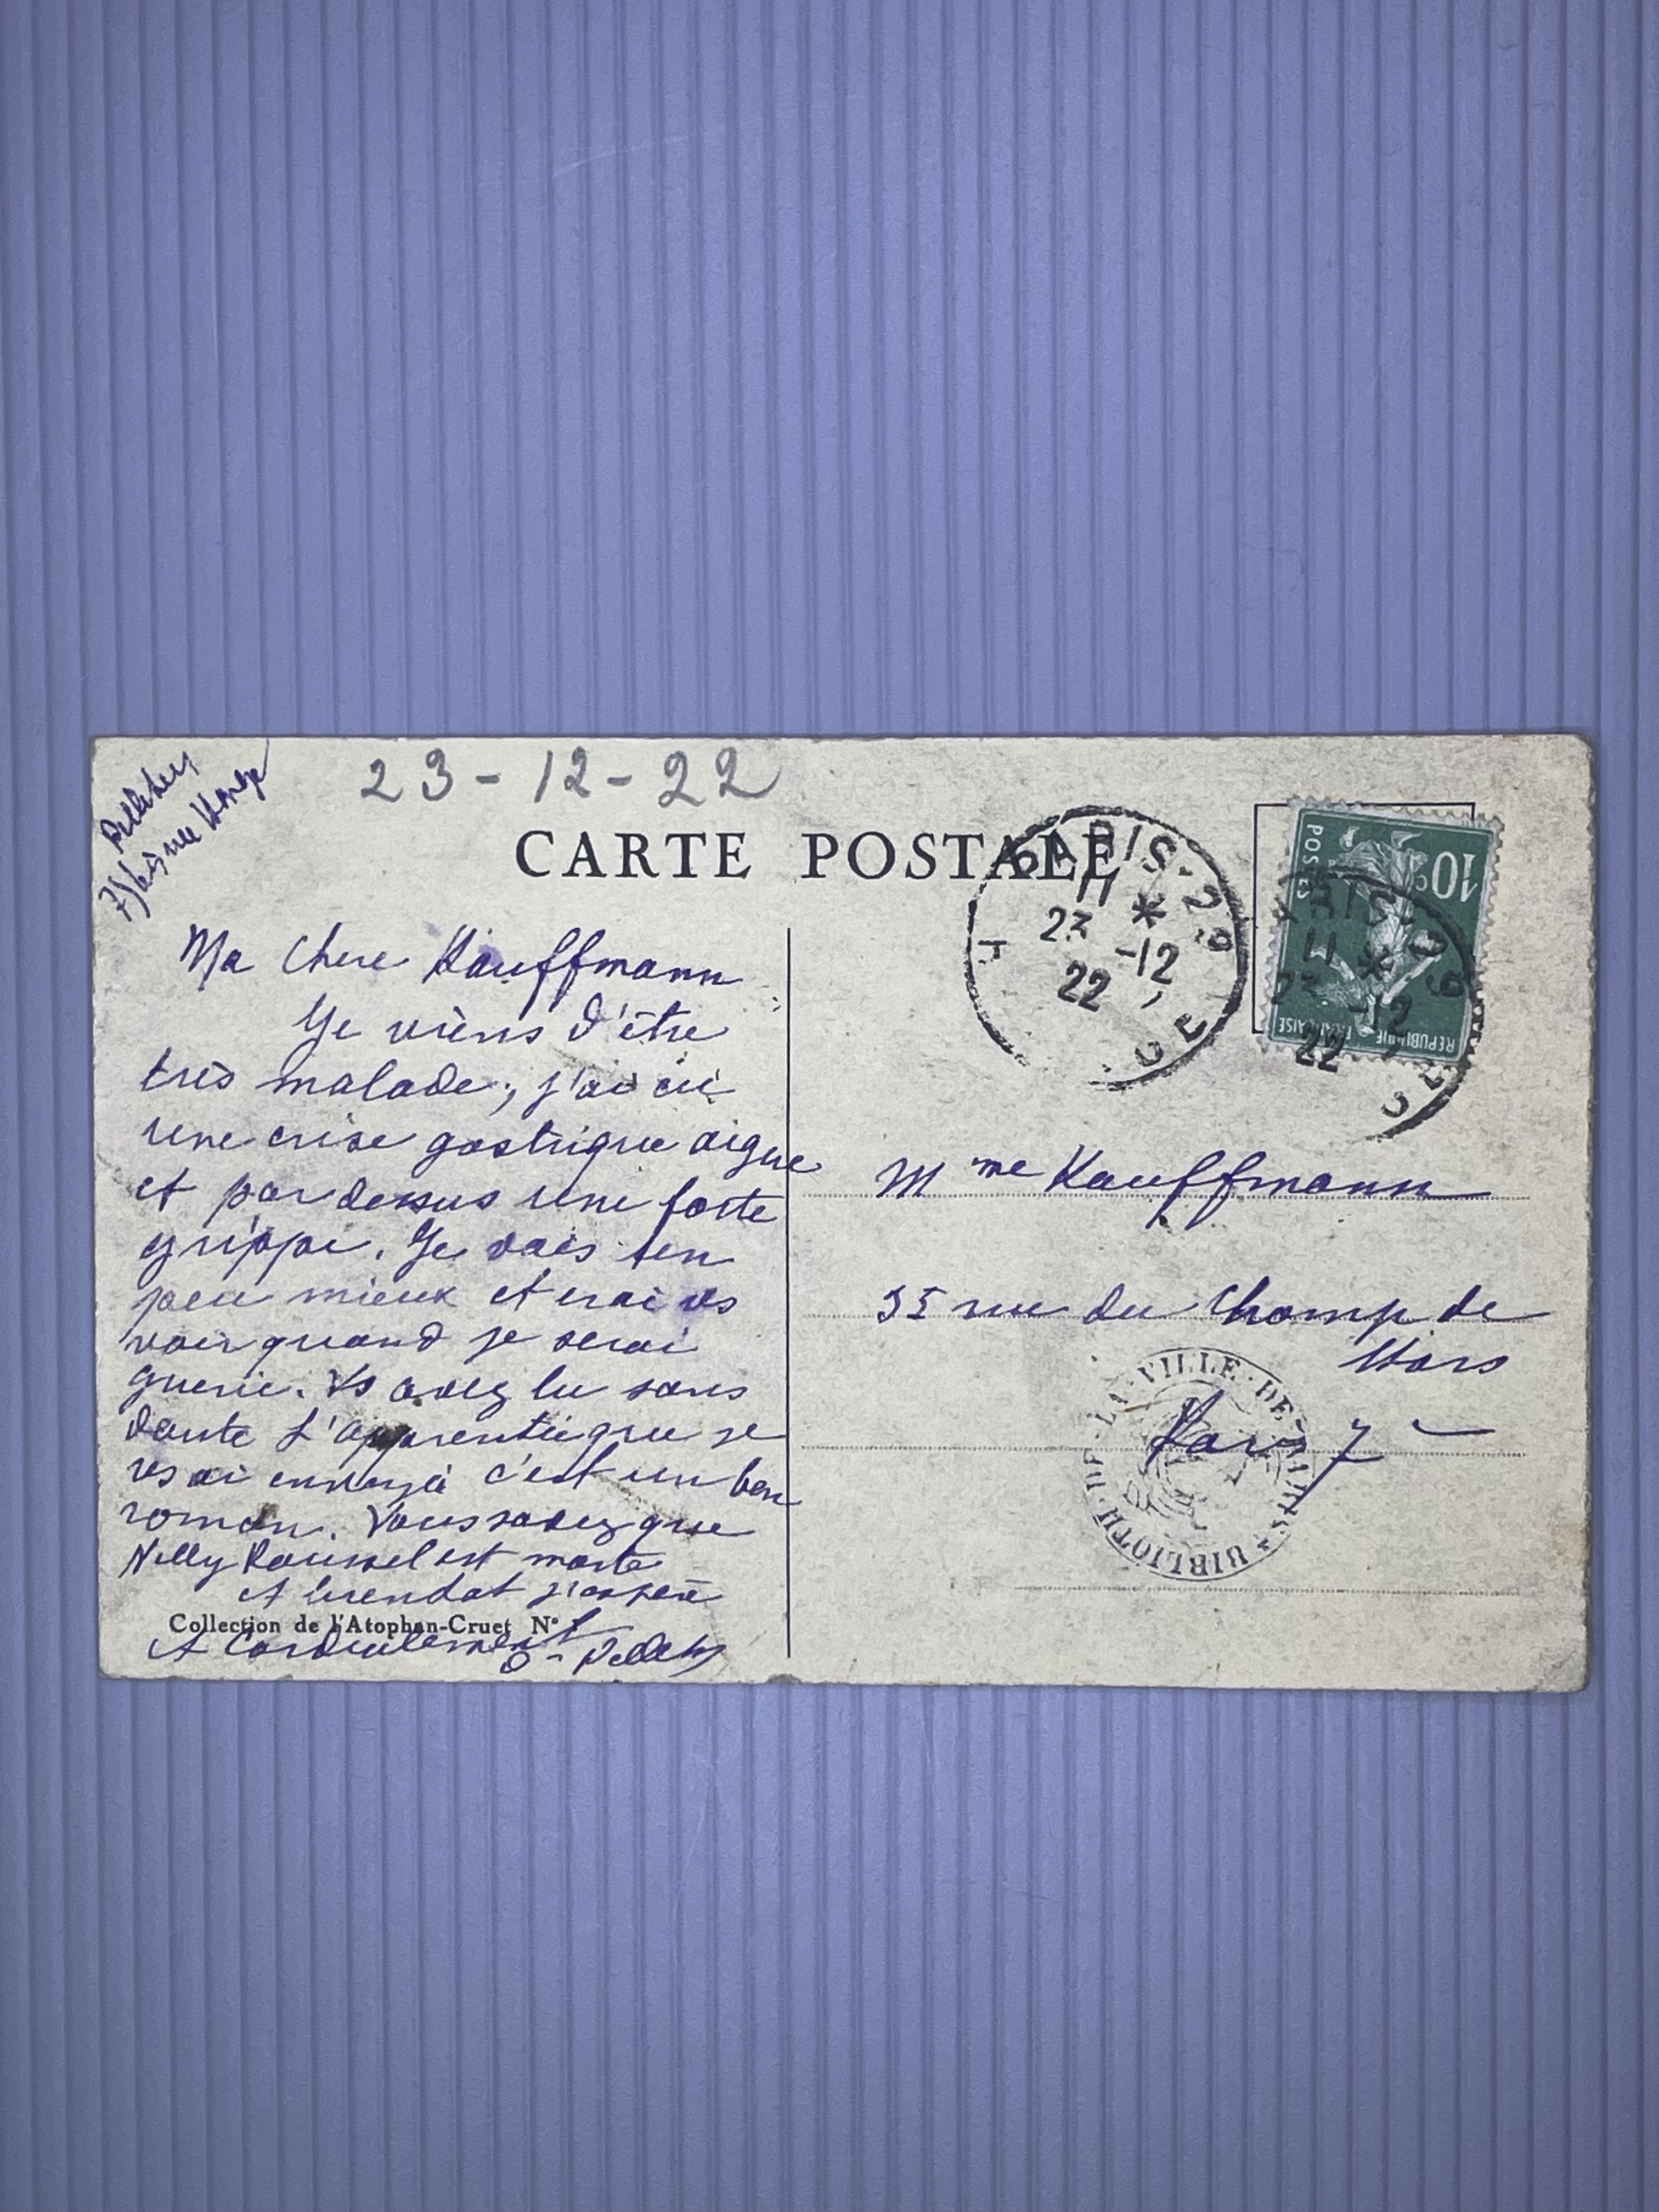 23-12-22
75 bis rue Monge
CARTE POSTALE
PARIS-29
11 *
23 -12
22
10c
POSTES
REPUBLIQUE FRANÇAISE
Ma Chere Kauffmann
Je viens d'être
très malade, j'ai eu
une crise gastrique aigue
et par dessus une forte
grippe. Je vais un
peu mieux et irai vs
voir quand je serai
guerie. Vs avez lu sans
doute L'apprentie que je
vs ai envoyé c'est un bon
roman. Vous savez que
Nelly Roussel est morte
A bientot j'espère
Collection de l'Atophan-Cruet N°
et Cordialement
Mme Kauffmann
35 rue du Champ de
Mars
Paris 7e
BIBLIOTH. DE LA VILLE DE PARIS